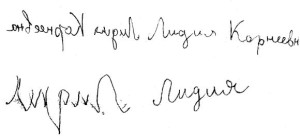 Лидия Корнеевна Лидия Корнеевн
Лидия Лидия